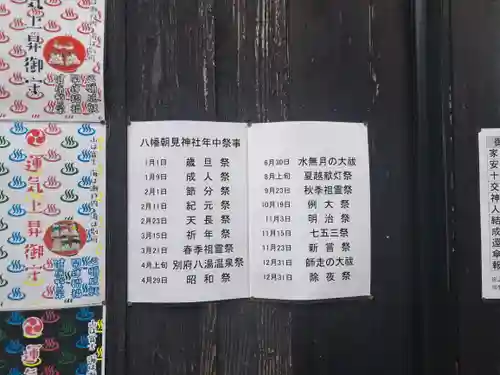 運気上昇御守
運気上昇御守
運気
八幡朝見神社年中祭事
1月1日 歳旦祭
1月9日 成人祭
2月1日 節分祭
2月11日 紀元祭
2月23日 天長祭
3月15日 祈年祭
3月21日 春季祖霊祭
4月上旬 別府八湯温泉祭
4月29日 昭和祭
6月30日 水無月の大祓
8月上旬 夏越献灯祭
9月23日 秋季祖霊祭
10月19日 例大祭
11月3日 明治祭
11月15日 七五三祭
11月23日 新嘗祭
12月31日 師走の大祓
12月31日 除夜祭
家安十交神人結成還傘報